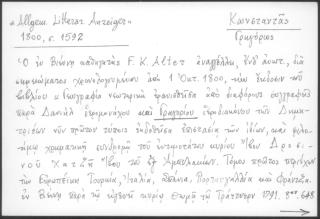 «Allgem. Litterar. Anzeiger»
1800, σ. 1592
Κωνσταντᾶς
Γρηγόριος
Ὁ ἐν Βιέννῃ καθηγητὴς F. K. Alter ἀναγγέλλει, διὰ
σημειώματος χρονολογουμένου ἀπὸ 1 Ὀκτ. 1800, νέαν ἔκδοσιν τοῦ
βιβλίου «Γεωγραφία νεωτερικὴ ἐρανισθεῖσα ἀπὸ διαφόρους συγγραφεῖς
παρὰ Δανιὴλ ἱερομονάχου καὶ Γρηγορίου ἱεροδιακόνου τῶν Δημη-
τριέων νῦν πρῶτον τύποις ἐκδοθεῖσα ἐπιστασίᾳ τῶν ἰδίων, καὶ φιλο-
τίμῳ χρηματικῇ συνδρομῇ τοῦ ἐντιμοτάτου κυρίου Ἰω. Δροσι-
νοῦ Χατζῆ Ἴβου τοῦ ἐξ Ἀμπελακίων. Τόμος πρῶτος περιέχων
τὴν Εὐρωπαϊκὴν Τουρκίαν, Ἰταλίαν, Σπάνια, Πορτουγαλλίαν καὶ Φράντζαν.
ἐν Βιέννῃ παρὰ τῷ εὐγενεῖ κυρίῳ Θωμᾷ τῷ Τράττνερν 1791. 8ον 648